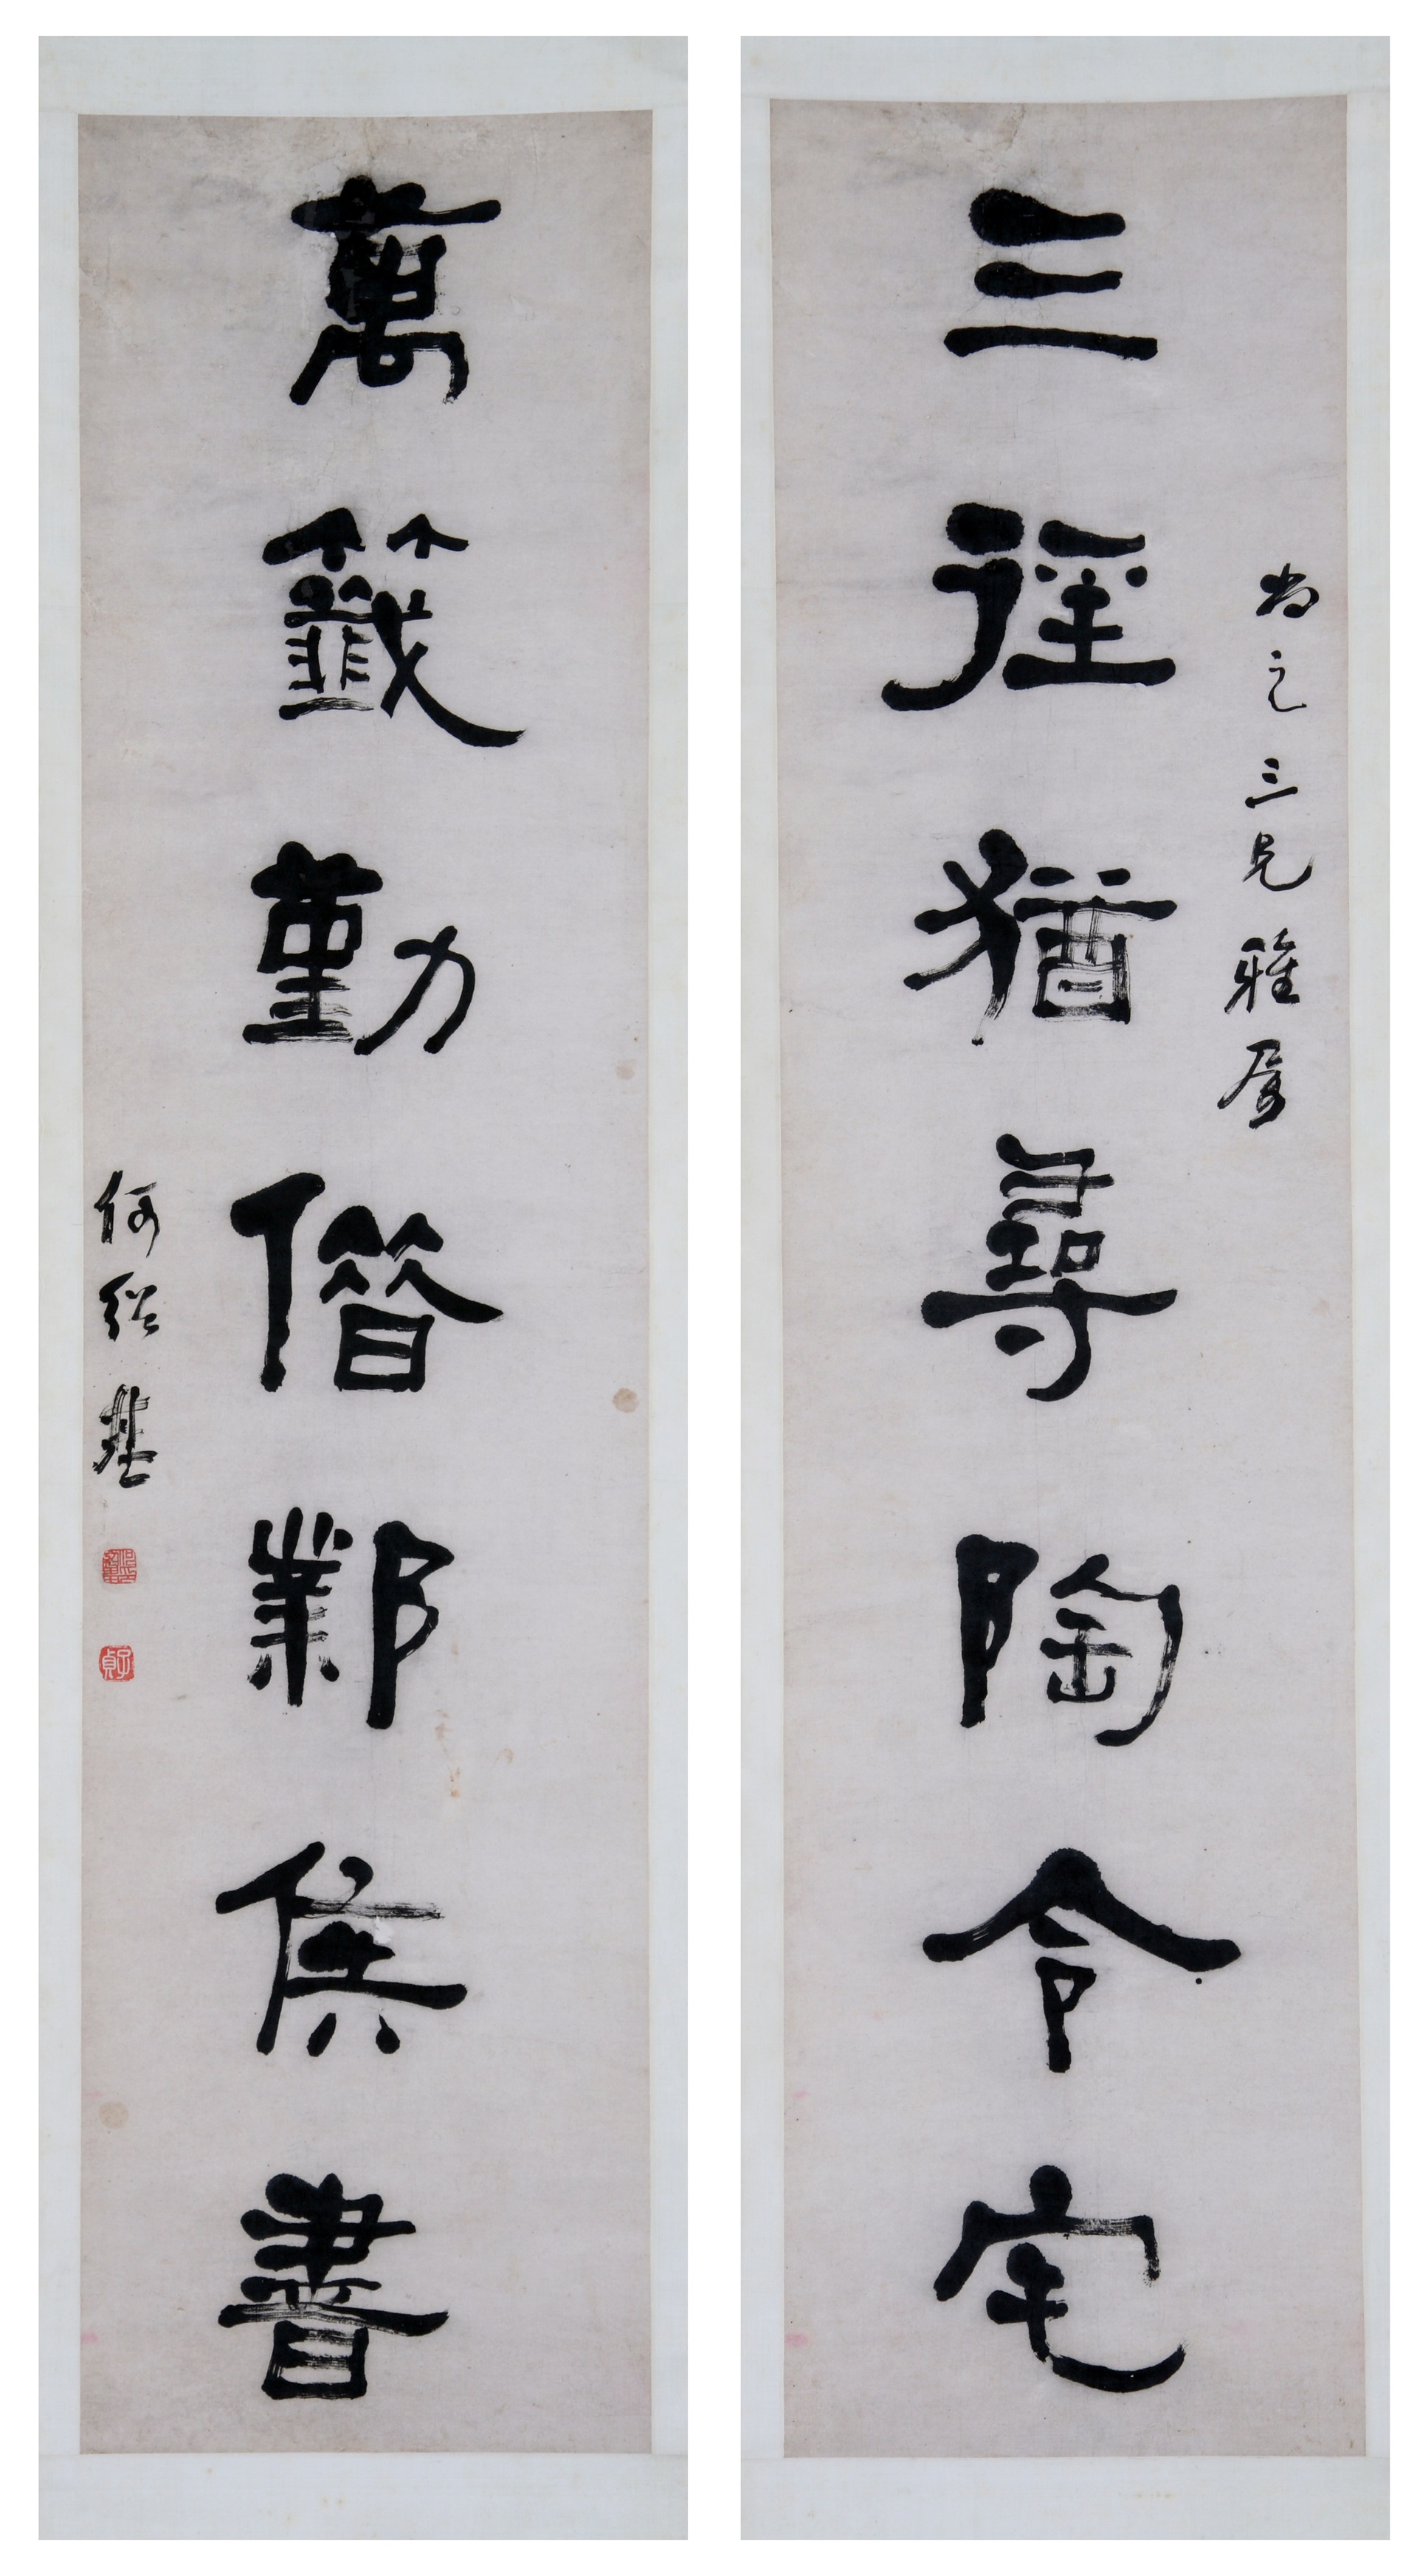 尚之三兄雅屬
三徑猶尋陶令宅
萬籤勤借鄴侯書
何紹基
子貞